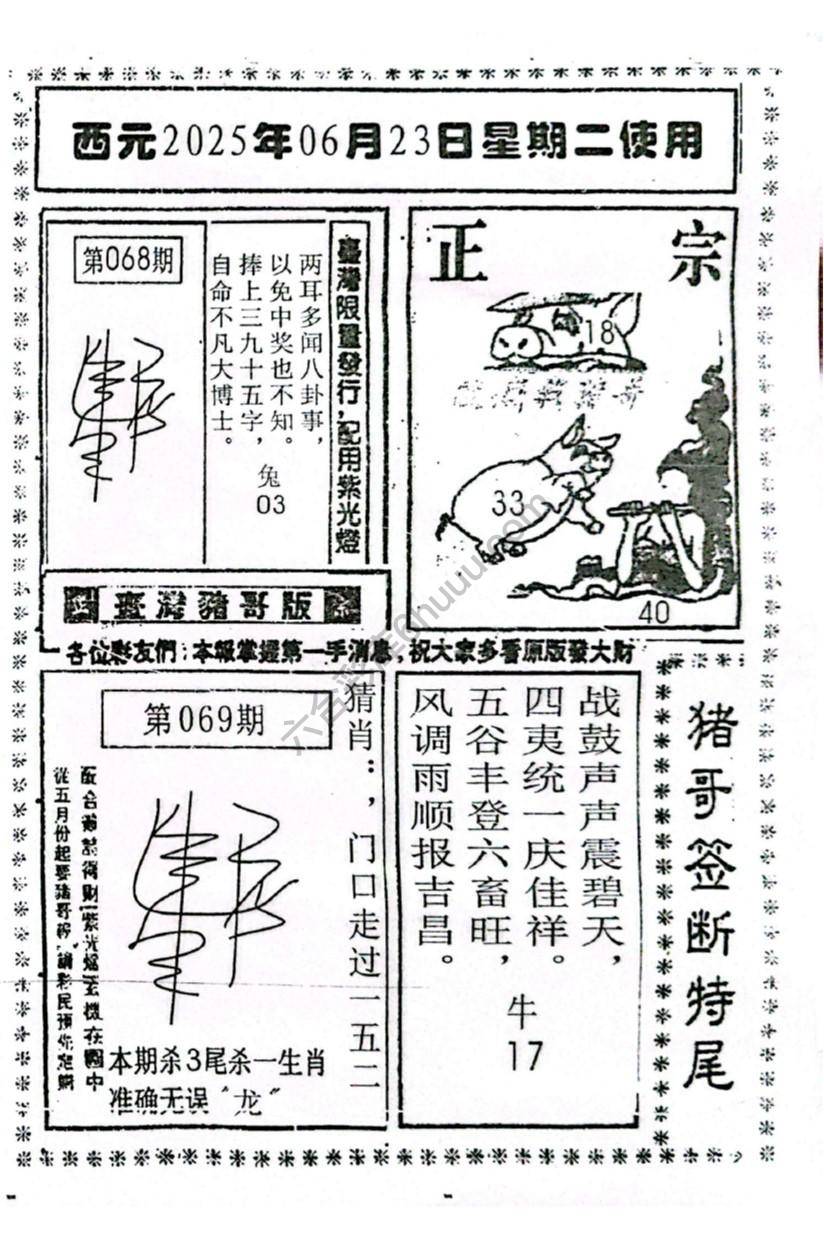 西元2025年06月23日星期二使用
第068期
臺灣限量發行,配用紫光燈
两耳多闻八卦事,
以免中奖也不知。
捧上三九十五字,
自命不凡大博士。
兔
03
正宗
18
33
40
臺灣豬哥版
各位彩友們:本報掌握第一手消息,祝大家多看原版發大財
第069期
猜肖:,门口走过一五二
從五月份起要豬哥報
本期杀3尾杀一生肖
准确无误“龙”
战鼓声声震碧天,
四夷统一庆佳祥。
五谷丰登六畜旺,
风调雨顺报吉昌。
牛
17
猪哥签断特尾
六合彩库6huuu.com